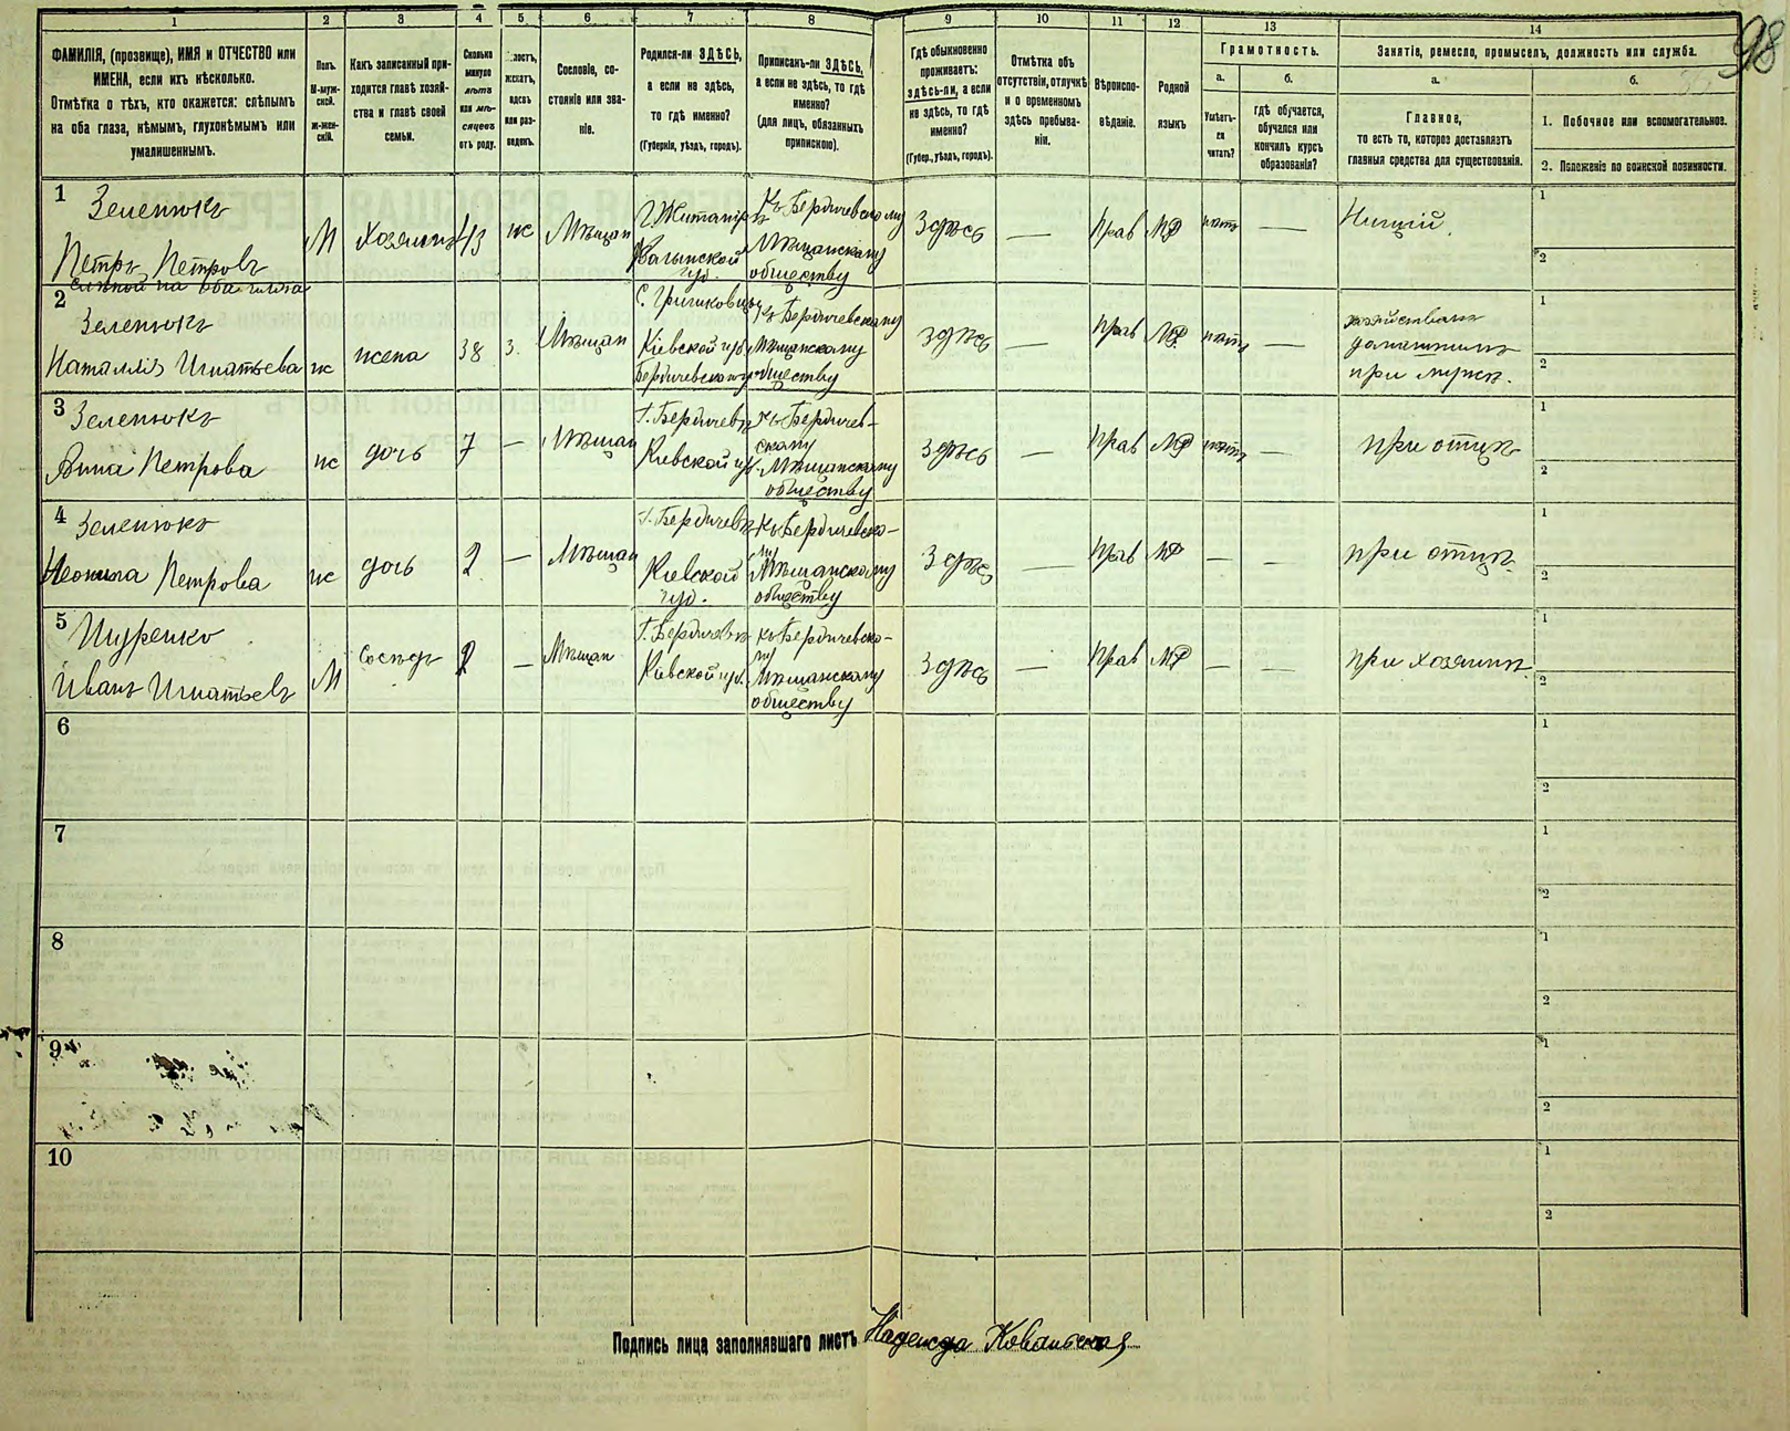 98
1 2 3 4 5 6 7 8 9 10 11 12 13 14
ФАМИЛІЯ, (прозвище), ИМЯ и ОТЧЕСТВО или
ИМЕНА, если ихъ нѣсколько.
Отмѣтка о тѣхъ, кто окажется: слѣпымъ
на оба глаза, нѣмымъ, глухонѣмымъ или
умалишеннымъ.
Полъ.
М-муж-
ской.
ж-жен-
скій.
Какъ записанный при-
ходится главѣ хозяй-
ства и главѣ своей
семьи.
Сколько
минуло
лѣтъ
или мѣ-
сяцевъ
отъ роду.
лостъ,
женатъ,
вдовъ
или раз-
веденъ.
Сословіе, со-
стояніе или зва-
ніе.
Родился-ли ЗДѢСЬ,
а если не здѣсь,
то гдѣ именно?
(Губернія, уѣздъ, городъ).
Приписанъ-ли ЗДѢСЬ,
а если не здѣсь, то гдѣ
именно?
(для лицъ, обязанныхъ
припискою).
Гдѣ обыкновенно
проживаетъ:
здѣсь-ли, а если
не здѣсь, то гдѣ
именно?
(Губер., уѣздъ, городъ).
Отмѣтка объ
отсутствіи, отлучкѣ
и о временномъ
здѣсь пребыва-
ніи.
Вѣроиспо-
вѣданіе.
Родной
языкъ
Грамотность.
а.
Умѣетъ-
ли
читать?
б.
гдѣ обучается,
обучался или
кончилъ курсъ
образованія?
Занятіе, ремесло, промыселъ, должность или служба.
а.
Главное,
то есть то, которое доставляетъ
главныя средства для существованія.
б.
1. Побочное или вспомогательное.
2. Положеніе по воинской повинности.
1 Зеленюкъ
Петръ Петровъ
слѣпой на оба глаза
М
Хозяинъ
43
же
Мѣщан
Г. Житаміръ
Валынской
губ.
Къ Бердичевскому
Мѣщанскому
обществу
Здѣсь
—
Прав
МР
нѣтъ
—
Нищій.
1
2
2 Зеленюкъ
Наталлія Игнатьева
ж
жена
38
З.
Мѣщан
С. Гришковцы
Кіевской губ.
Бердичевского у
Къ Бердичевскому
Мѣщанскому
обществу
Здѣсь
—
Прав
МР
нѣтъ
—
хазяйствамъ
дамашнимъ
при мужѣ.
1
2
3 Зеленюкъ
Анна Петрова
ж
дочь
7
—
Мѣщан
Г. Бердичевъ
Кіевской губ.
Къ Бердичев-
скому
Мѣщанскому
обществу
Здѣсь
—
Прав
МР
нѣтъ
—
при отцѣ
1
2
4 Зеленюкъ
Неонила Петрова
ж
дочь
2
—
Мѣщан
Г. Бердичевъ
Кіевской
губ.
Къ Бердичевско-
му
Мѣщанскому
обществу
Здѣсь
—
Прав
МР
—
—
при отцѣ
1
2
5 Щуренко
Иванъ Игнатьевъ
М
Сосѣдъ
2
—
Мѣщан
Г. Бердичевъ
Кіевской губ.
Къ Бердичевско-
му
Мѣщанскому
обществу
Здѣсь
—
Прав
МР
—
—
при хозяинѣ.
1
2
6
1
2
7
1
2
8
1
2
9
1
2
10
1
2
Подпись лица заполнявшаго листъ Надежда Ковальская